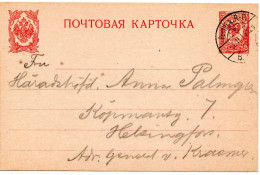 ПОЧТОВАЯ КАРТОЧКА
Fru
Anna Palmgren
Köpmansg. 7.
Helsingfors.
Adr. General v. Kraemer